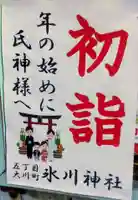 初詣
年の始めに
氏神様へ
氷川神社